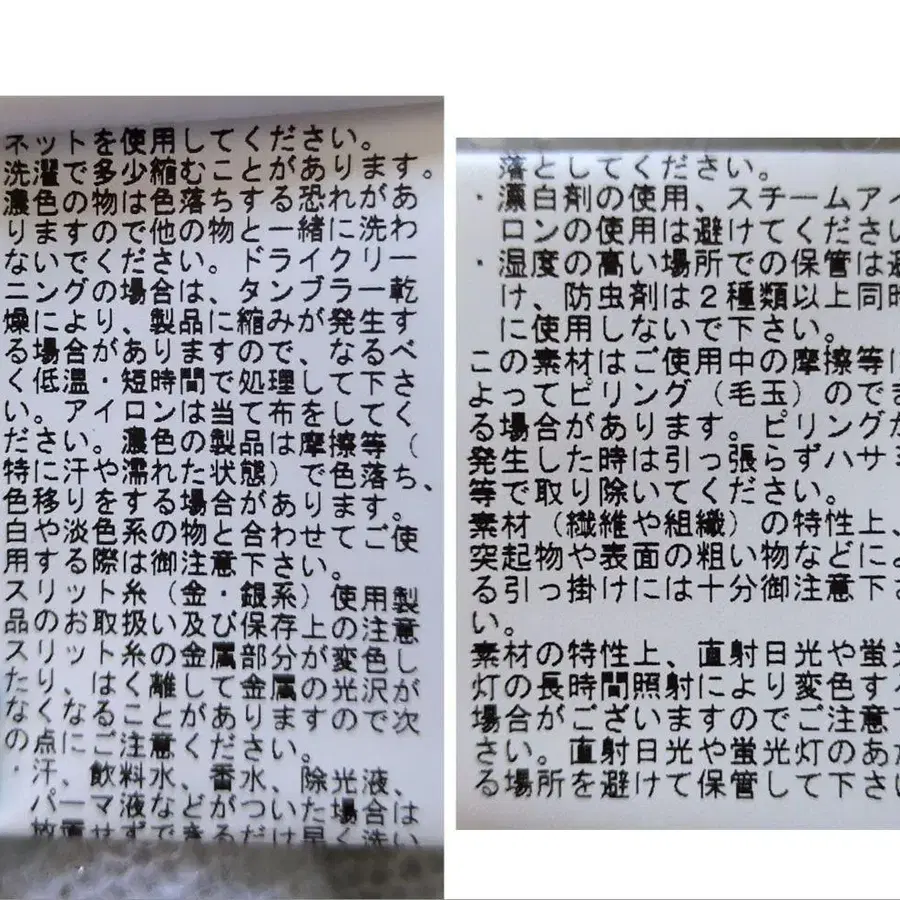 ネットを使用してください。
洗濯で多少縮むことがあります。
濃色の物は色落ちする恐れがあ
りますので他の物と一緒に洗わ
ないでください。ドライクリー
ニングの場合は、タンブラー乾
燥により、製品に縮みが発生す
る場合がありますので、なるべ
く低温・短時間で処理して下さ
い。アイロンは当て布をしてく
ださい。濃色の製品は摩擦等（
特に汗や濡れた状態）で色落ち、
色移りをする場合があります。
白や淡色系の物と合わせてご使
用する際は御注意下さい。
スリット糸（金・銀系）使用製
品のお取扱い及び保存上の注意
スリット糸の金属部分が変色し
たり、はく離して金属の光沢が
なくなることがありますので次
の点にご注意ください。
・汗、飲料水、香水、除光液、
パーマ液などがついた場合は
放置せずできるだけ早く洗い
落としてください。
・漂白剤の使用、スチームアイ
ロンの使用は避けてください
・湿度の高い場所での保管は避
け、防虫剤は２種類以上同時
に使用しないで下さい。
この素材はご使用中の摩擦等に
よってピリング（毛玉）のでき
る場合があります。ピリングが
発生した時は引っ張らずハサミ
等で取り除いてください。
素材（繊維や組織）の特性上、
突起物や表面の粗い物などによ
る引っ掛けには十分御注意下さ
い。
素材の特性上、直射日光や蛍光
灯の長時間照射により変色する
場合がございますのでご注意下
さい。直射日光や蛍光灯のあた
る場所を避けて保管して下さい